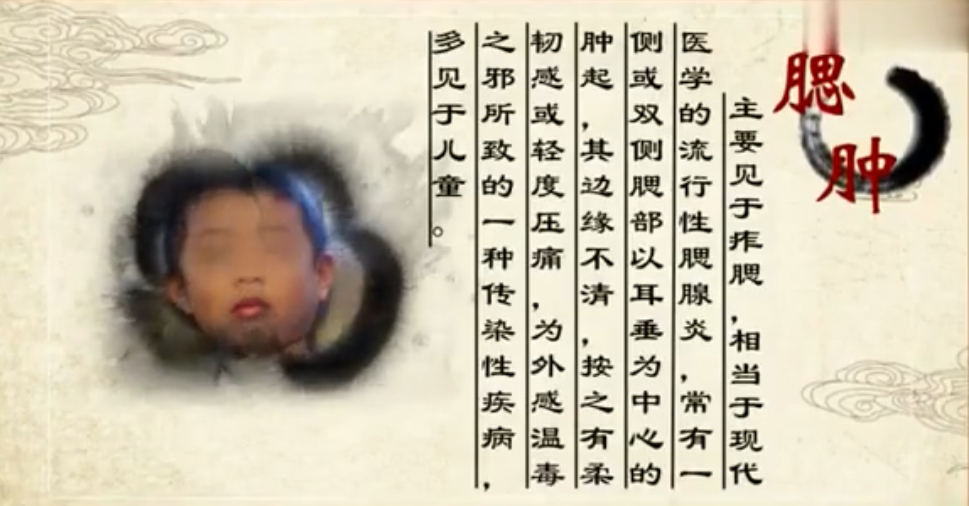 腮肿
主要见于痄腮，相当于现代
医学的流行性腮腺炎，常有一
侧或双侧腮部以耳垂为中心的
肿起，其边缘不清，按之有柔
韧感或轻度压痛，为外感温毒
之邪所致的一种传染性疾病，
多见于儿童。